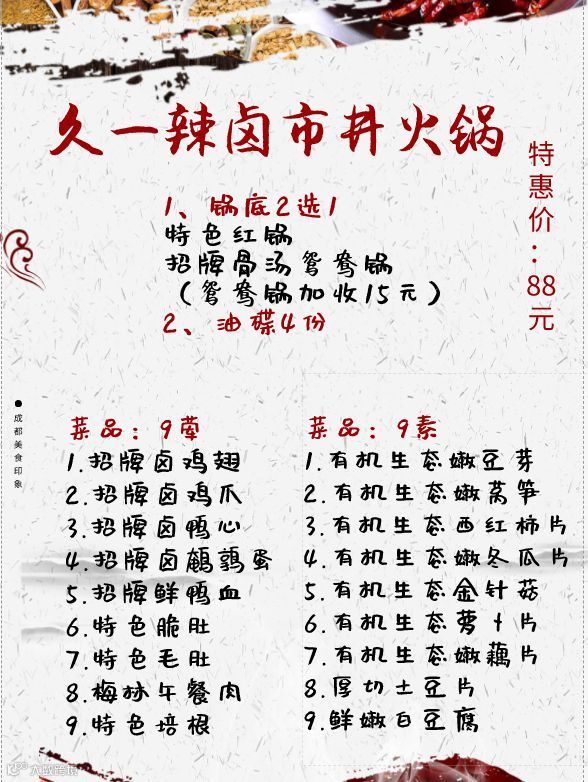 久一辣卤市井火锅
特惠价：88元
1、锅底2选1
特色红锅
招牌骨汤鸳鸯锅
（鸳鸯锅加收15元）
2、油碟4份
成都美食印象
菜品：9荤
1.招牌卤鸡翅
2.招牌卤鸡爪
3.招牌卤鸭心
4.招牌卤鹌鹑蛋
5.招牌鲜鸭血
6.特色脆肚
7.特色毛肚
8.梅林午餐肉
9.特色培根
菜品：9素
1.有机生态嫩豆芽
2.有机生态嫩莴笋
3.有机生态西红柿片
4.有机生态嫩冬瓜片
5.有机生态金针菇
6.有机生态萝卜片
7.有机生态嫩藕片
8.厚切土豆片
9.鲜嫩白豆腐